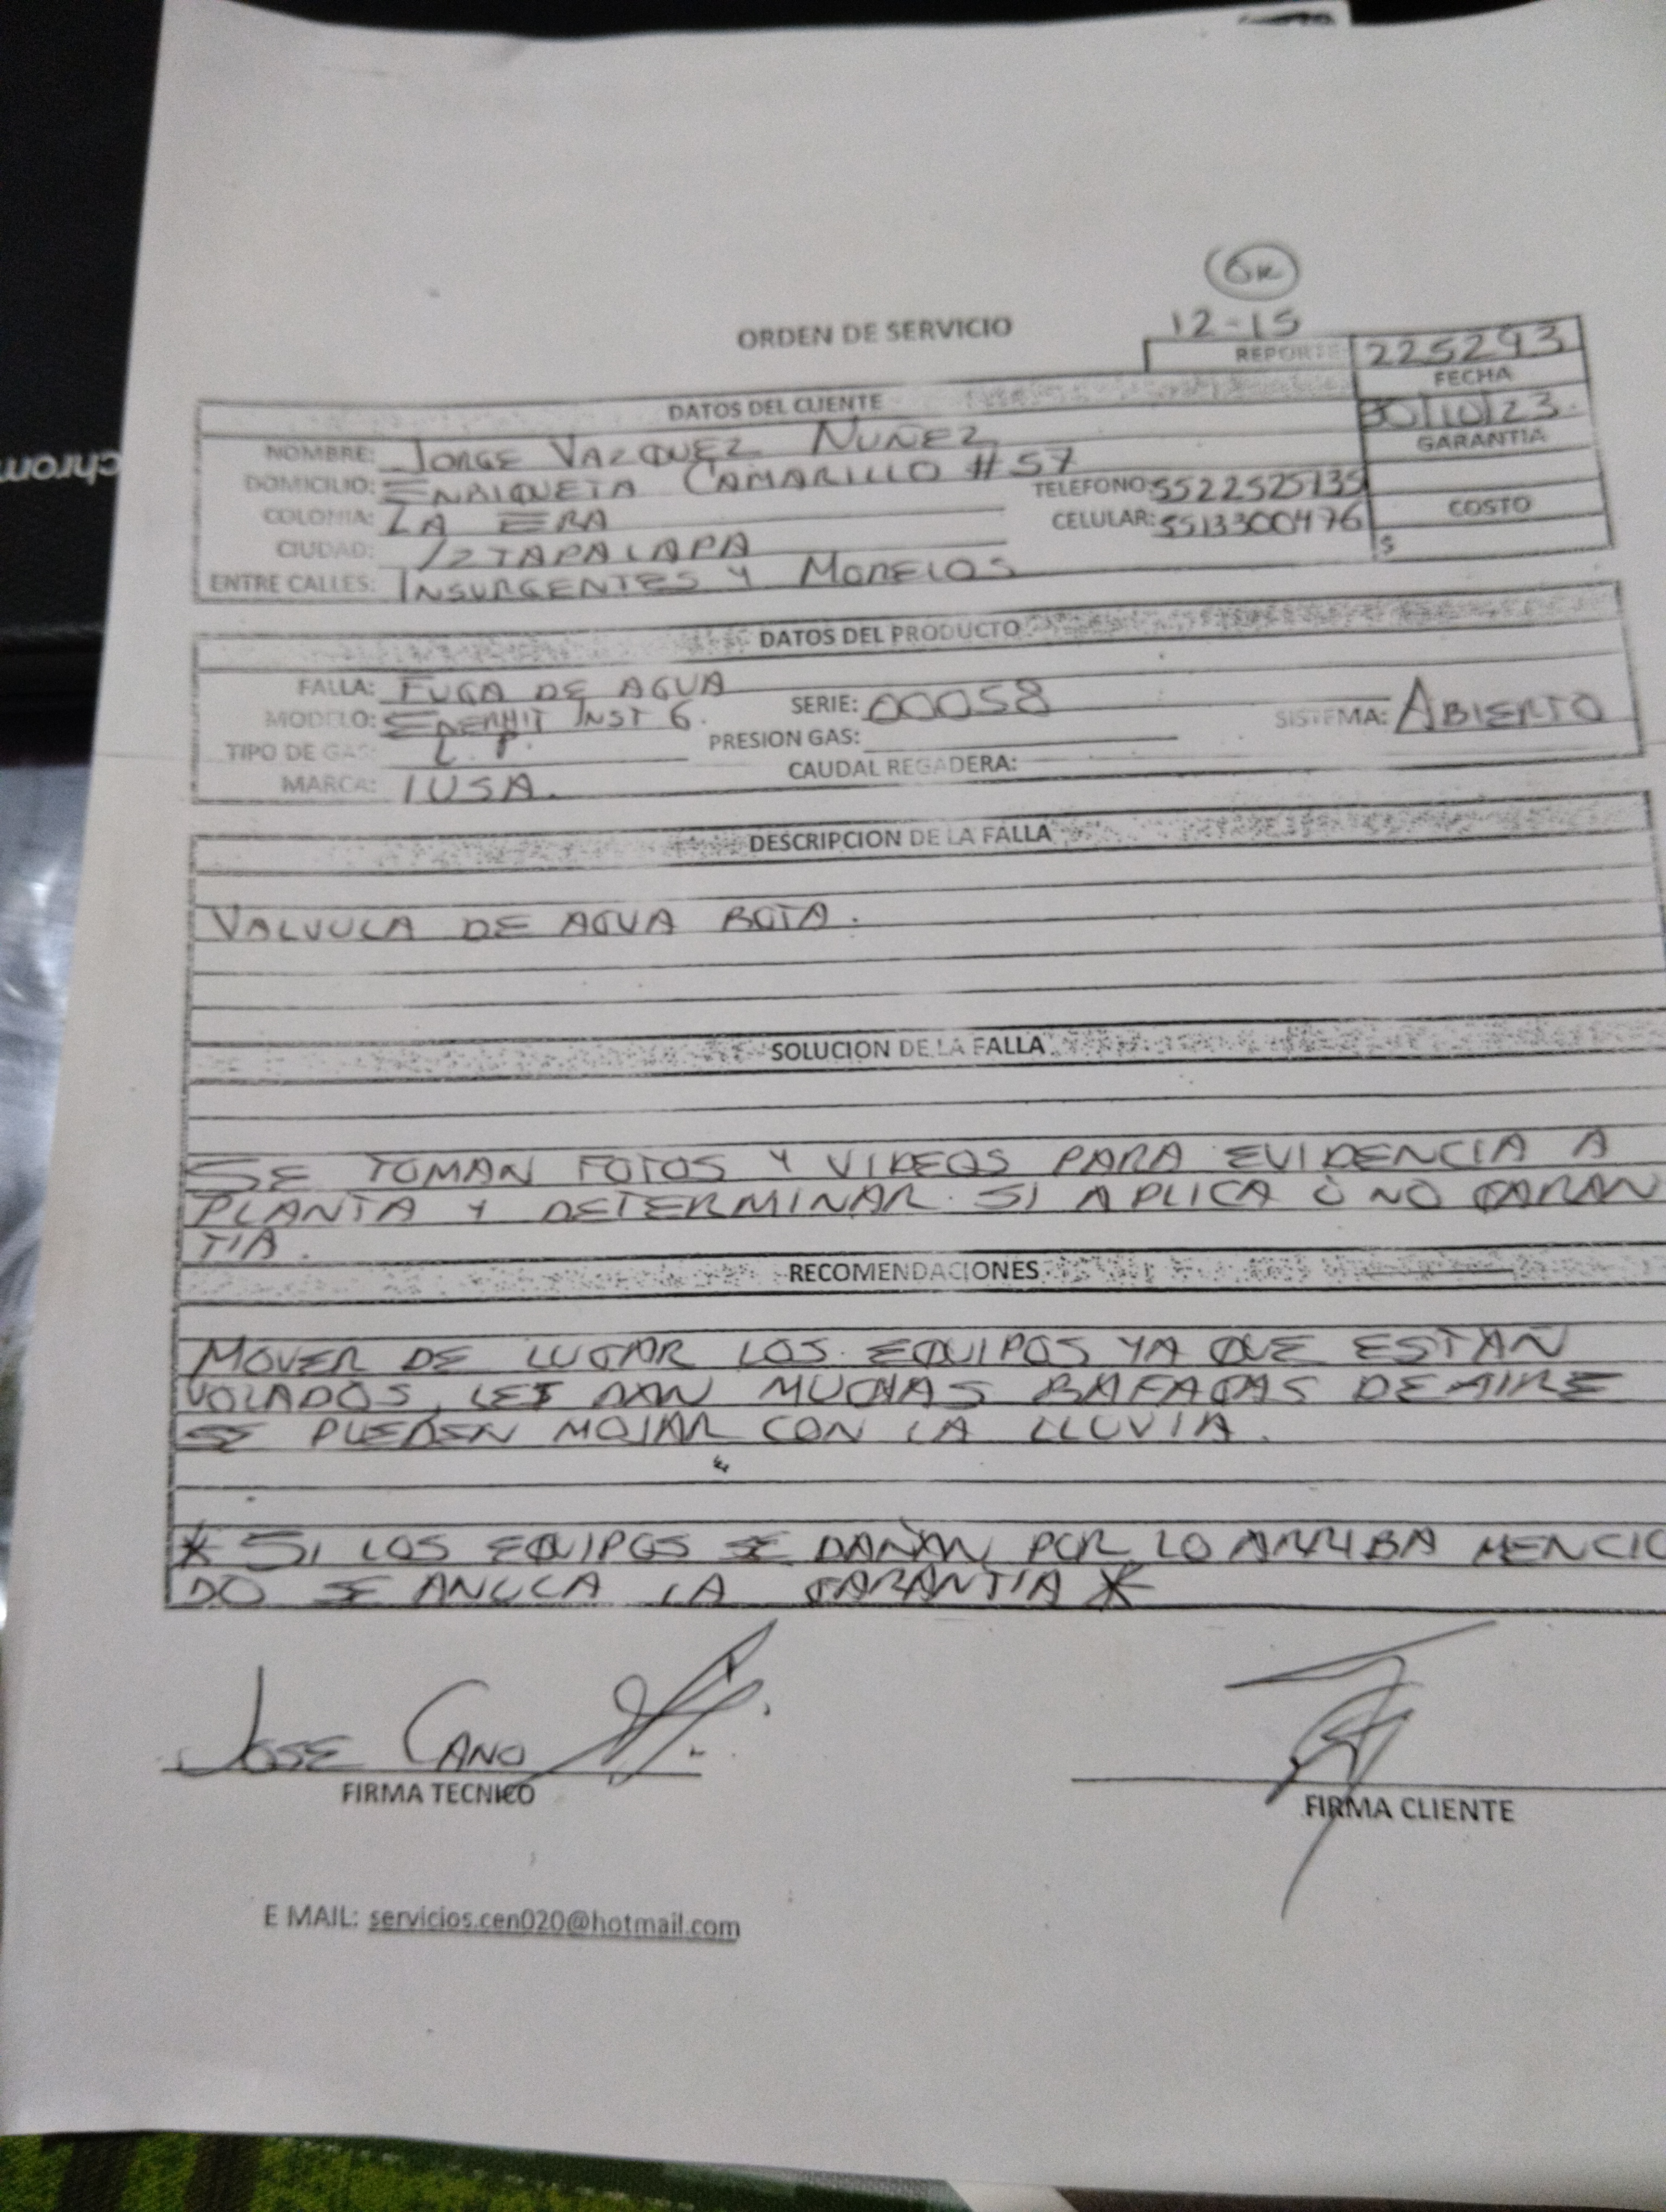 chrom
OK
12-15
ORDEN DE SERVICIO
REPORTE 225293
DATOS DEL CLIENTE
FECHA
30/10/23.
NOMBRE: JORGE VAZQUEZ NUÑEZ
GARANTIA
DOMICILIO: ENRIQUETA CAMARILLO #57
TELEFONO: 5522525735
COLONIA: LA ERA
CELULAR: 5513300476
COSTO
$
CIUDAD: IZTAPALAPA
ENTRE CALLES: INSURGENTES Y MORELOS
DATOS DEL PRODUCTO
FALLA: FUGA DE AGUA
MODELO: INST 6.
SERIE: 00058
SISTEMA: ABIERTO
TIPO DE GAS: L.P.
PRESION GAS:
MARCA: IUSA.
CAUDAL REGADERA:
DESCRIPCION DE LA FALLA
VALVULA DE AGUA ROTA.
SOLUCION DE LA FALLA
SE TOMAN FOTOS Y VIDEOS PARA EVIDENCIA A
PLANTA Y DETERMINAR SI APLICA O NO GARAN
TIA.
RECOMENDACIONES
MOVER DE LUGAR LOS EQUIPOS YA QUE ESTAN
VOLADOS, LES DAN MUCHAS RAFAGAS DE AIRE
SE PUEDEN MOJAR CON LA LLUVIA.
* SI LOS EQUIPOS SE DAÑAN POR LO ARRIBA MENCIO
DO SE ANULA LA GARANTIA *
JOSE CANO
FIRMA TECNICO
FIRMA CLIENTE
E MAIL: servicios.cen020@hotmail.com